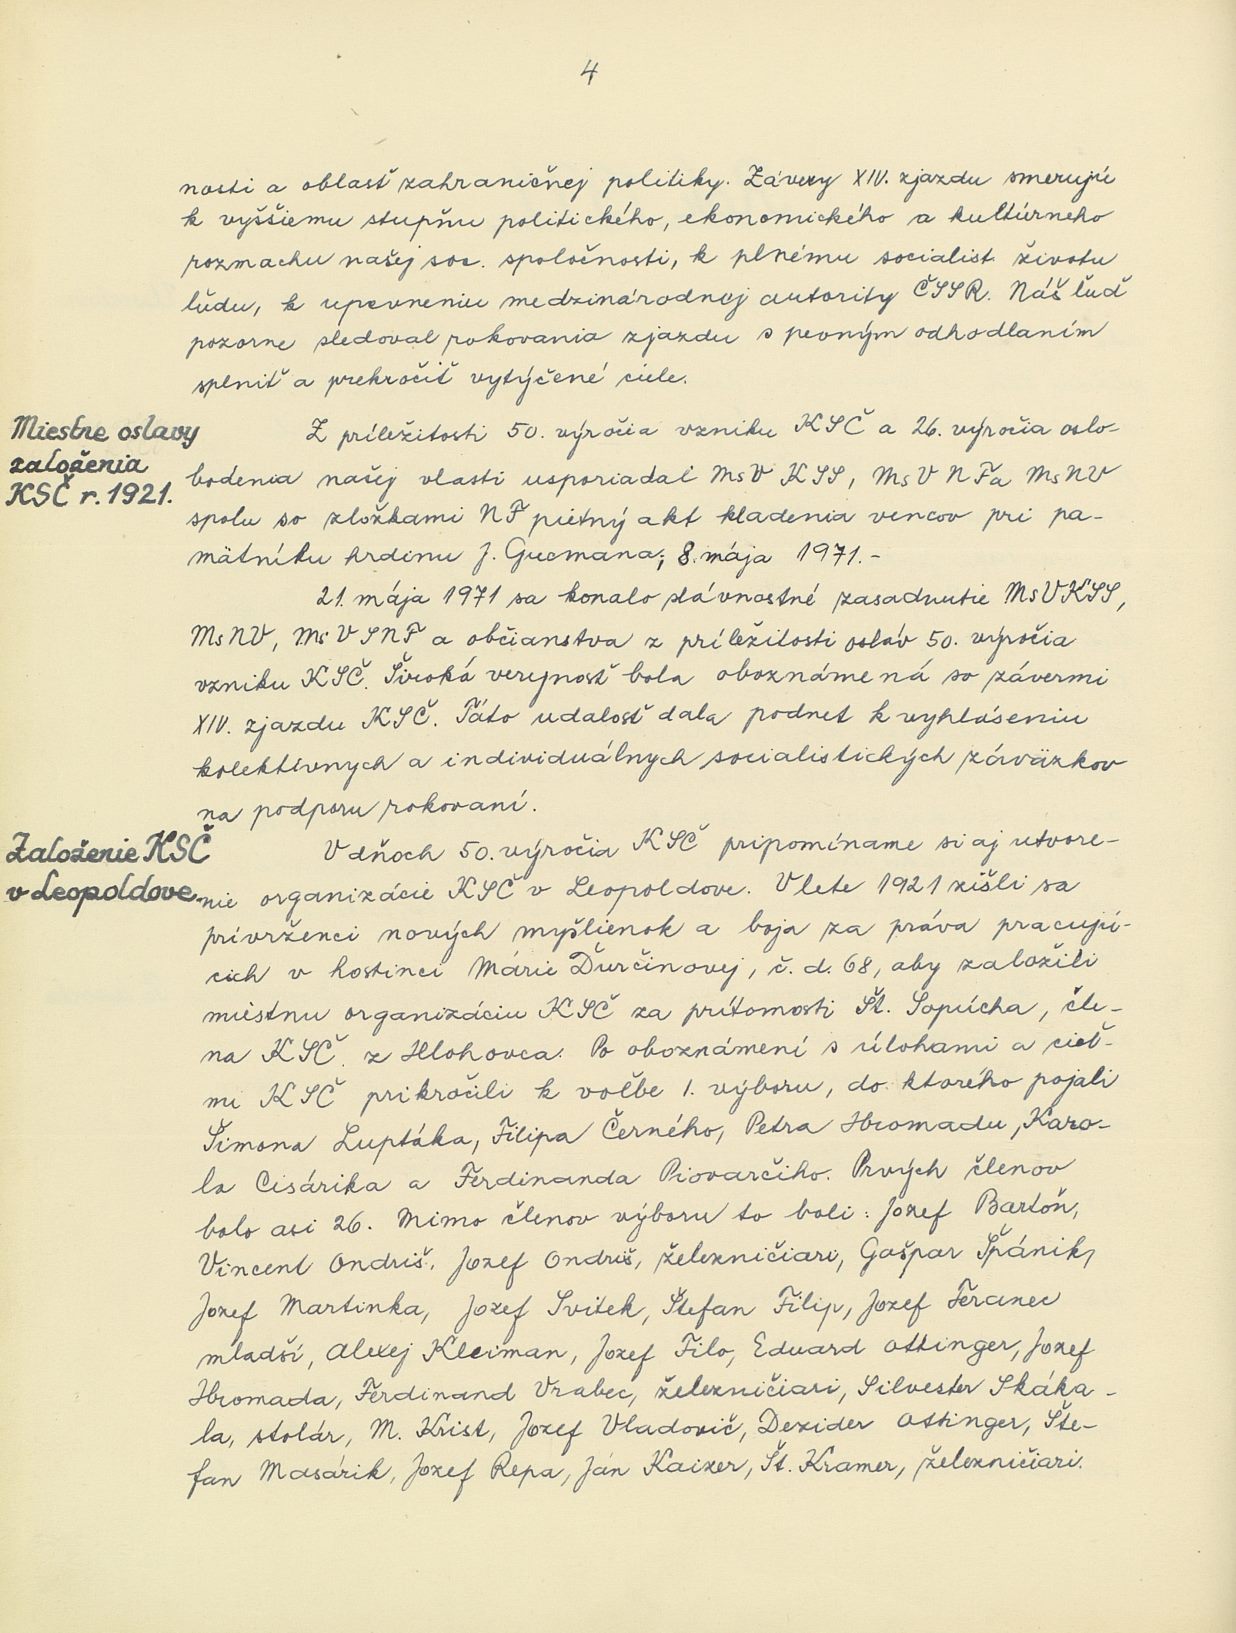 4
nosti a oblasť zahraničnej politiky. Závery XIV. zjazdu smerujú
k vyššiemu stupňu politického, ekonomického a kultúrneho
rozmachu našej soc. spoločnosti, k plnému socialist. životu
ľudu, k upevneniu medzinárodnej autority ČSSR. Náš ľud
pozorne sledoval rokovania zjazdu s pevným odhodlaním
splniť a prekročiť vytýčené ciele.
Miestne oslavy
založenia
KSČ r. 1921.
Z príležitosti 50. výročia vzniku KSČ a 26. výročia oslo-
bodenia našej vlasti usporiadal MsV KSS, MsV NF a MsNV
spolu so zložkami NF pietny akt kladenia vencov pri pa-
mätníku hrdinu J. Gucmana; 8. mája 1971.-
21. mája 1971 sa konalo slávnostné zasadnutie MsVKSS,
MsNV, MsVSNF a občianstva z príležitosti osláv 50. výročia
vzniku KSČ. Široká verejnosť bola oboznámená so závermi
XIV. zjazdu KSČ. Táto udalosť dala podnet k vyhláseniu
kolektívnych a individuálnych socialistických záväzkov
na podporu rokovaní.
Založenie KSČ
v Leopoldove
V dňoch 50. výročia KSČ pripomíname si aj utvore-
nie organizácie KSČ v Leopoldove. V lete 1921 zišli sa
prívrženci nových myšlienok a boja za práva pracujú-
cich v hostinci Márie Ďurčinovej, č. d. 68, aby založili
miestnu organizáciu KSČ za prítomosti Št. Sopúcha, čle-
na KSČ z Hlohovca. Po oboznámení s úlohami a cieľ-
mi KSČ prikročili k voľbe 1. výboru, do ktorého pojali
Šimona Luptáka, Filipa Černého, Petra Hromadu, Karo-
la Cisárika a Ferdinanda Piovarčiho. Prvých členov
bolo asi 26. Mimo členov výboru to boli: Jozef Bartoň,
Vincent Ondriš, Jozef Ondriš, železničiari, Gašpar Špánik,
Jozef Martinka, Jozef Svitek, Štefan Filip, Jozef Feranec
mladší, Alexej Kleiman, Jozef Filo, Eduard Ottinger, Jozef
Hromada, Ferdinand Vrabec, železničiari, Silvester Skáka-
la, stolár, M. Krist, Jozef Vladovič, Dezider Ottinger, Šte-
fan Masárik, Jozef Repa, Ján Kaizer, Št. Kramer, železničiari.